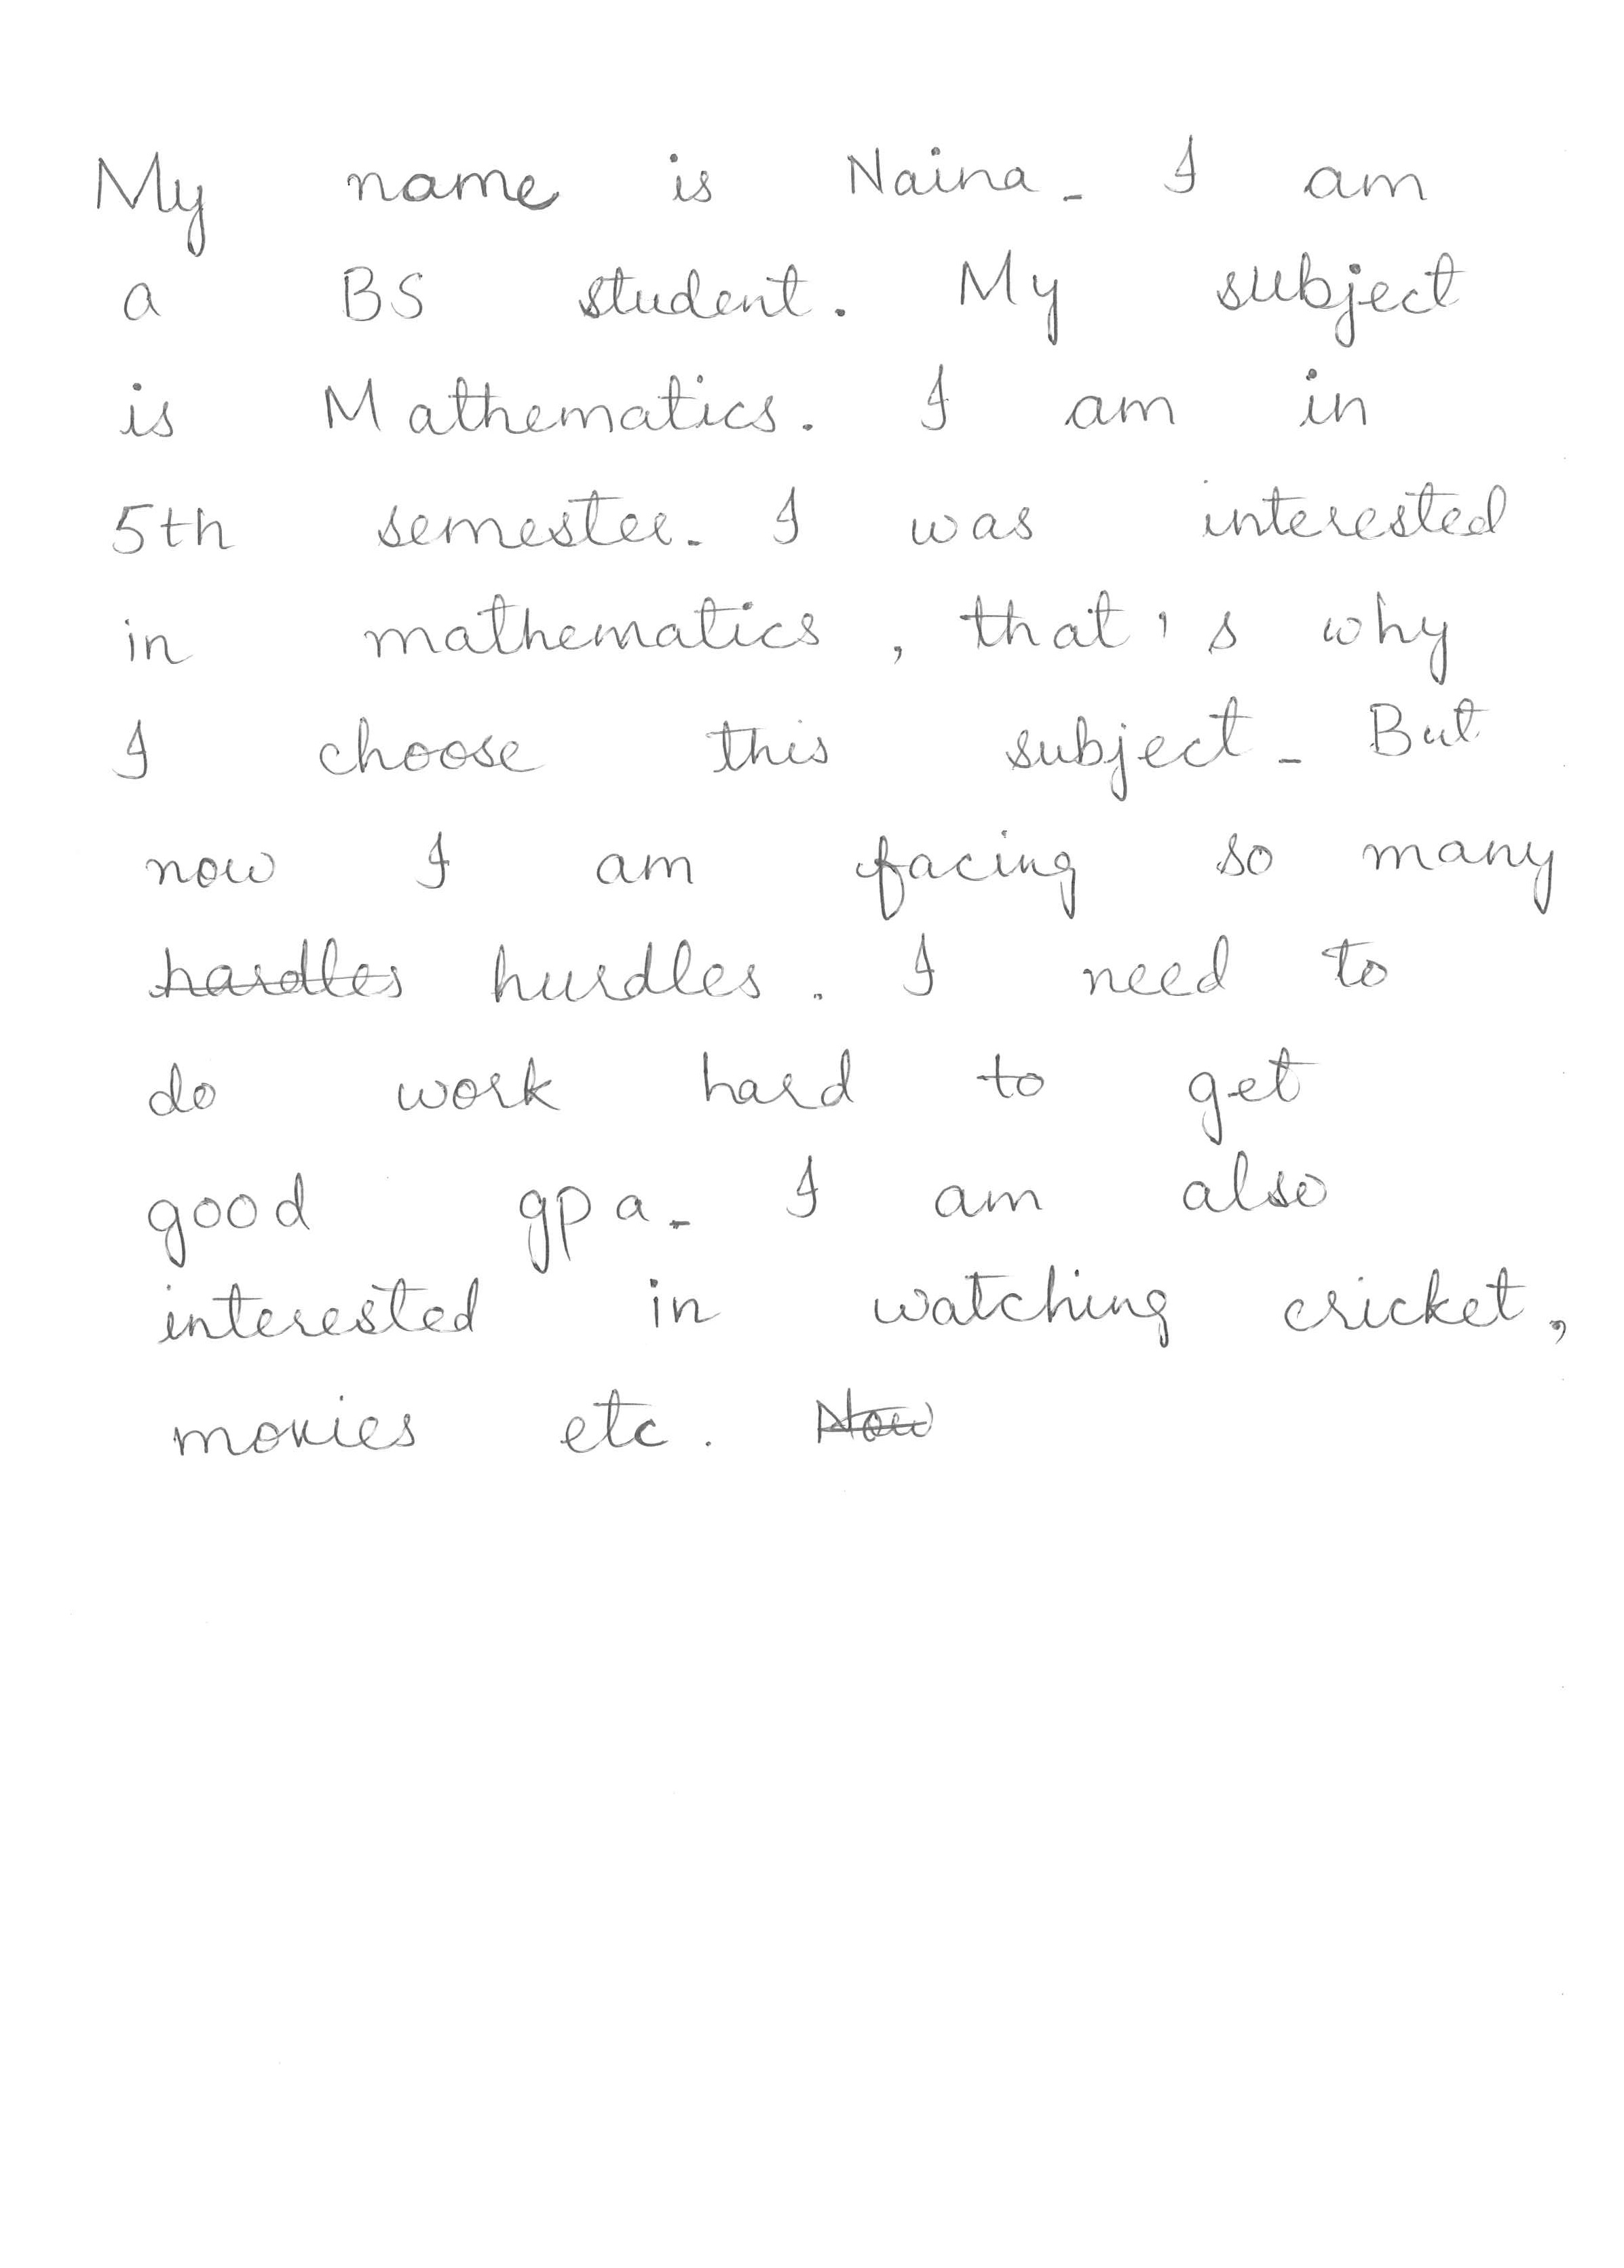 My name is Naina_ I am
a BS student. My subject
is Mathematics. I am in
5th semester_ I was interested
in mathematics, that's why
I choose this subject_ But
now I am facing so many
hardles hurdles. I need to
do work hard to get
good gpa_ I am also
interested in watching cricket,
movies etc. Now